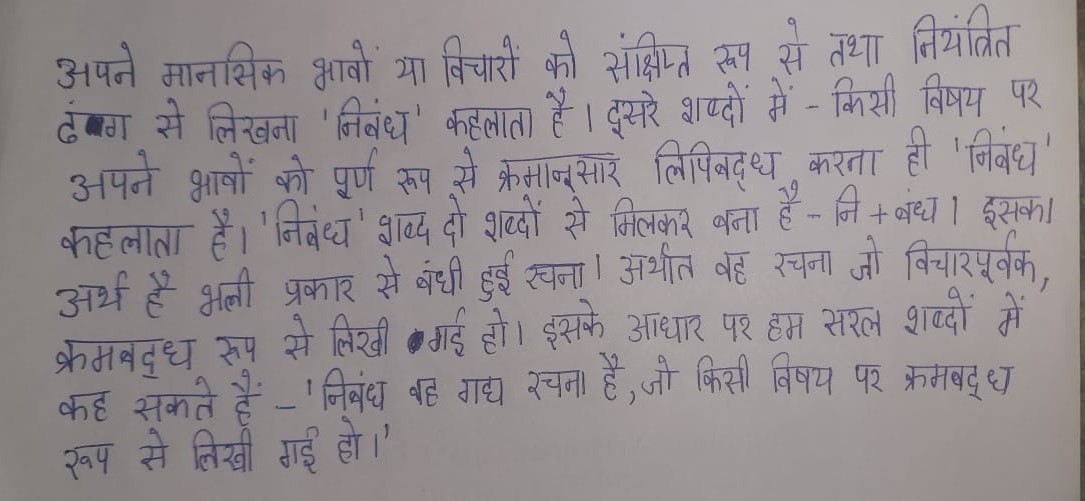 अपने मानसिक भावों या विचारों को संक्षिप्त रूप से तथा नियंत्रित
ढंग से लिखना 'निबंध' कहलाता है। दूसरे शब्दों में - किसी विषय पर
अपने भावों को पूर्ण रूप से क्रमानुसार लिपिबद्ध करना ही 'निबंध'
कहलाता है। 'निबंध' शब्द दो शब्दों से मिलकर बना है - नि + बंध। इसका
अर्थ है भली प्रकार से बंधी हुई रचना। अर्थात वह रचना जो विचारपूर्वक,
क्रमबद्ध रूप से लिखी गई हो। इसके आधार पर हम सरल शब्दों में
कह सकते हैं - 'निबंध वह गद्य रचना है, जो किसी विषय पर क्रमबद्ध
रूप से लिखी गई हो।'